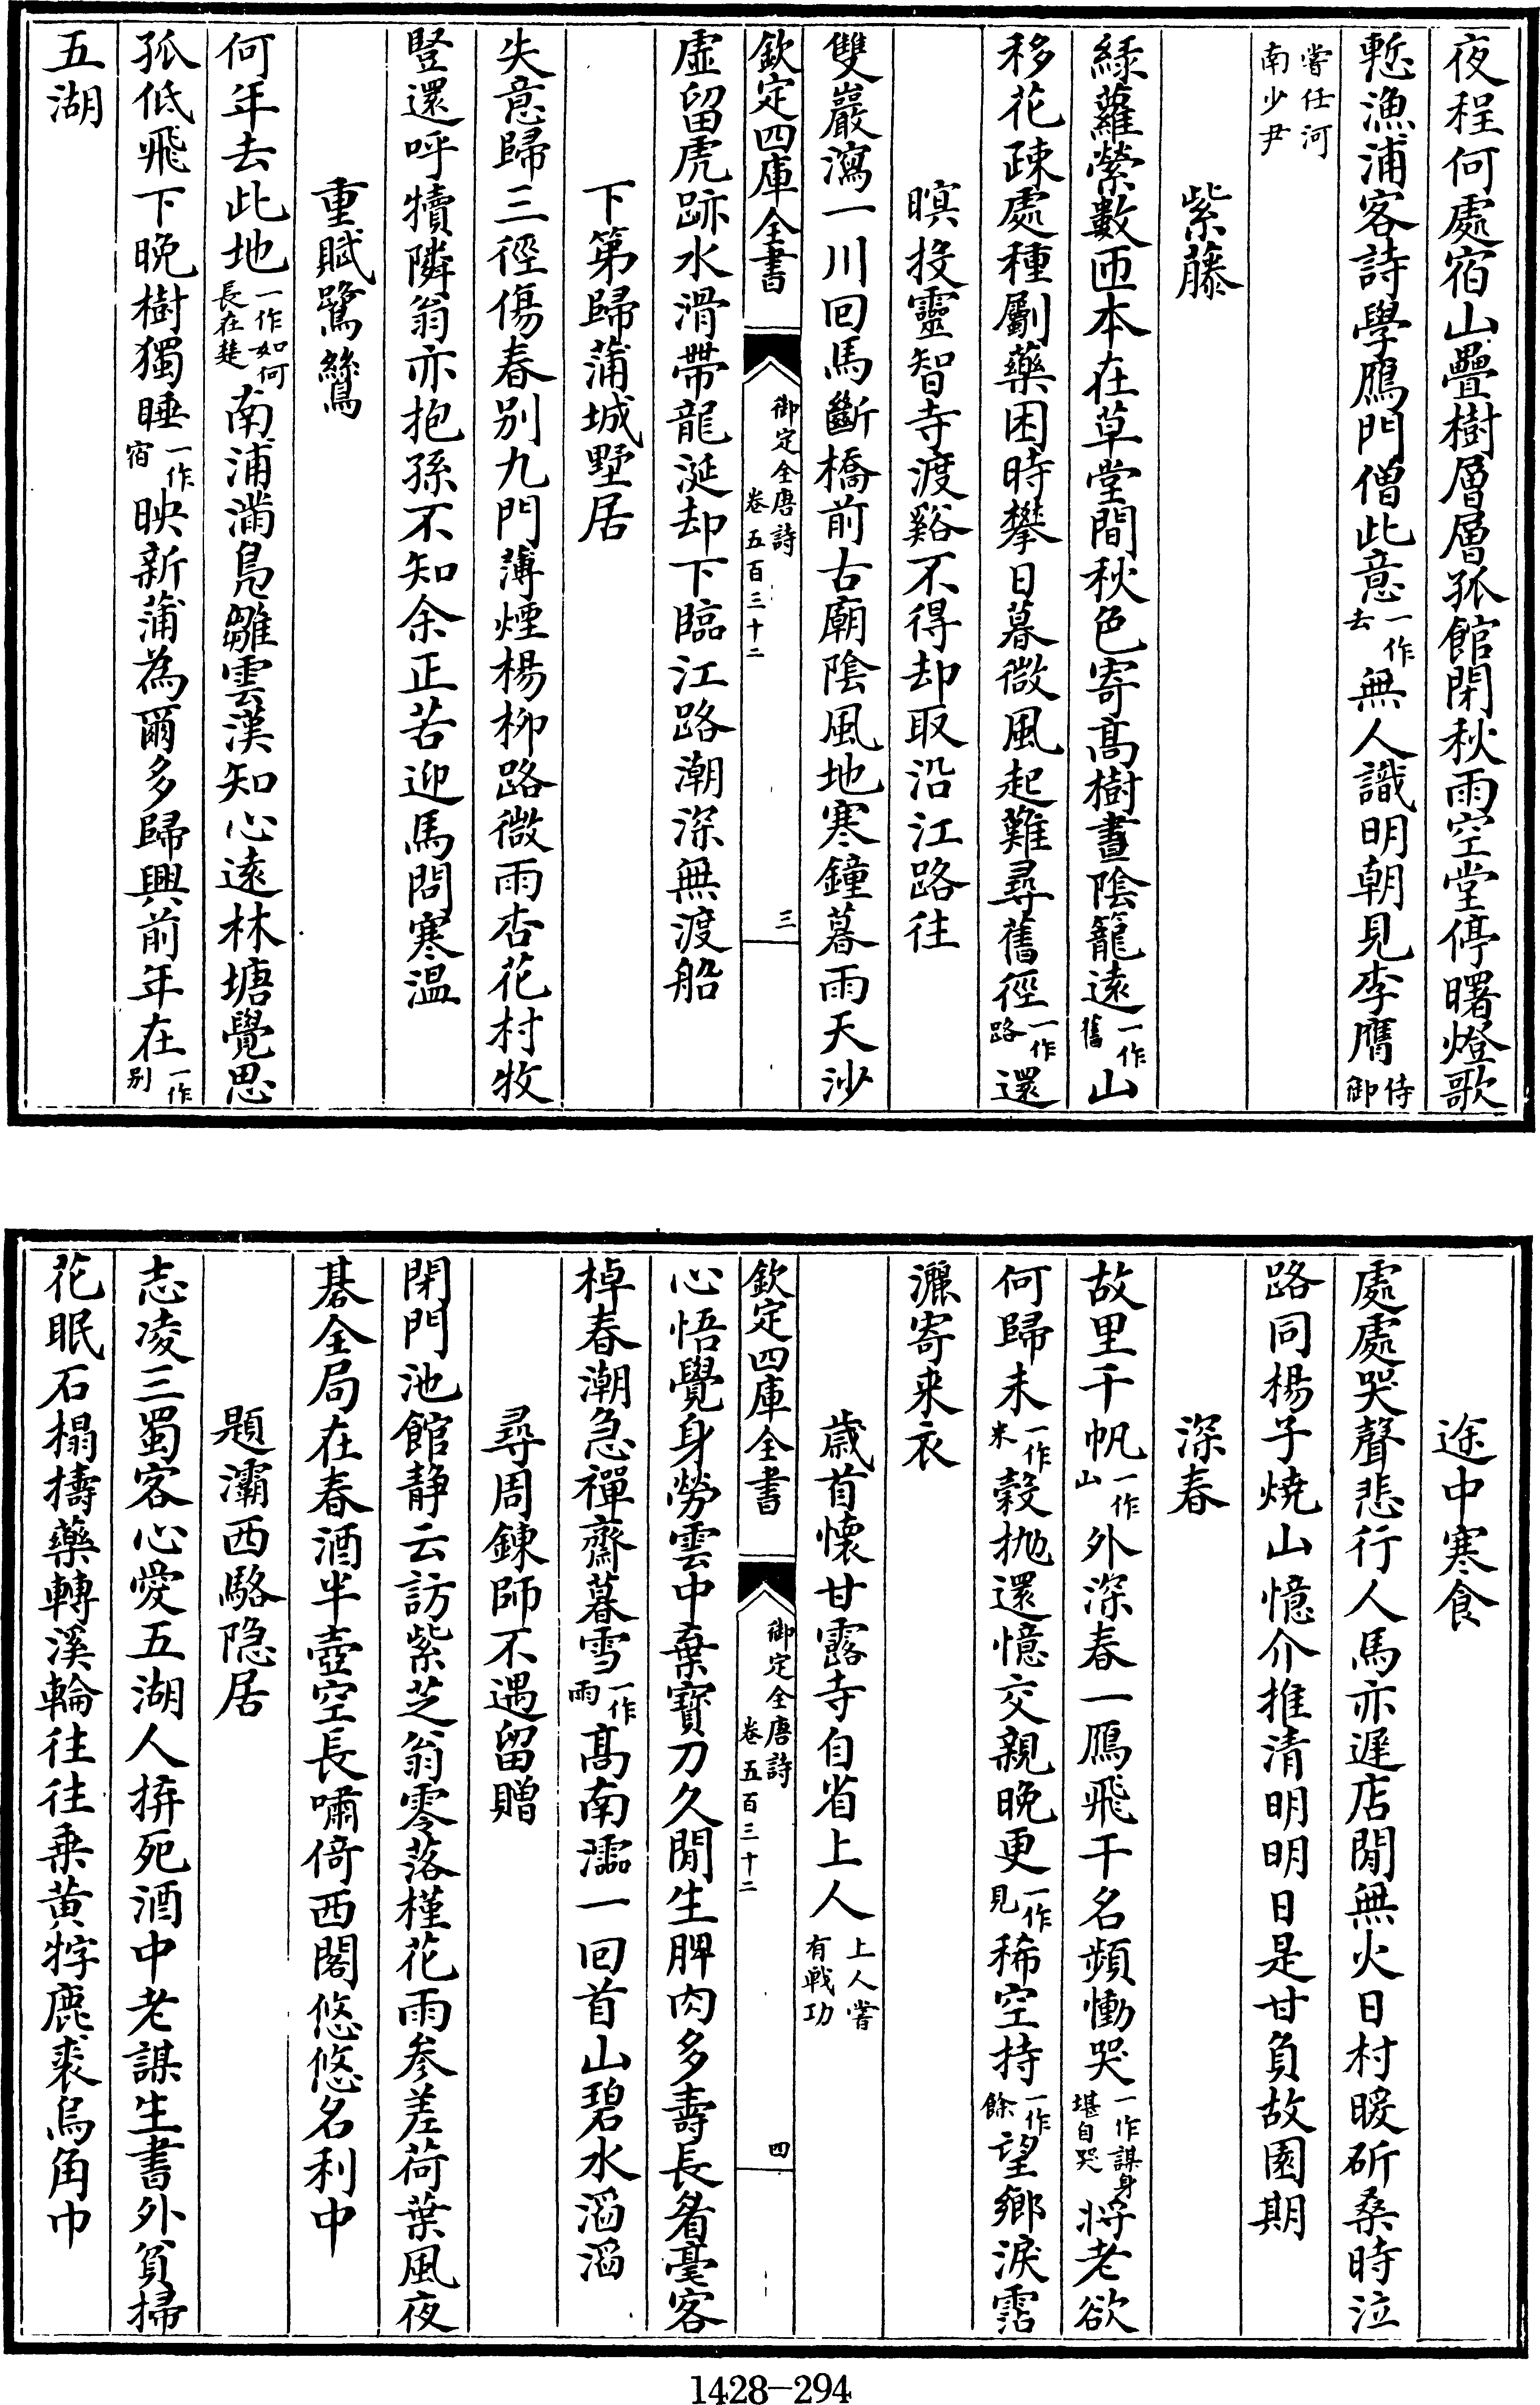 夜程何處宿山疊樹層層孤館閉秋雨空堂停曙燈歌
慙漁浦客詩學鴈門僧此意一作去無人識明朝見李膺侍御
嘗任河南少尹
紫藤
綠蘿縈數匝本在草堂間秋色寄髙樹晝陰籠遠一作舊山
移花疎處種劚藥困時攀日暮微風起難尋舊徑一作路還
暝投靈智寺渡谿不得却取沿江路往
雙巖瀉一川回馬斷橋前古廟陰風地寒鐘暮雨天沙
欽定四庫全書 御定全唐詩 卷五百三十二 三
虛留虎跡水滑帶龍涎却下臨江路潮深無渡船
下第歸蒲城墅居
失意歸三徑傷春别九門薄煙楊柳路微雨杏花村牧
豎還呼犢隣翁亦抱孫不知余正苦迎馬問寒温
重賦鷺鷥
何年去此地一作如何長在楚南浦滿鳧雛雲漢知心遠林塘覺思
孤低飛下晚樹獨睡一作宿映新蒲為爾多歸興前年在一作别
五湖
途中寒食
處處哭聲悲行人馬亦遲店閒無火日村暖斫桑時泣
路同楊子燒山憶介推清明明日是甘負故園期
深春
故里千帆一作山外深春一鴈飛干名頻慟哭一作謀身堪自哭將老欲
何歸未一作米穀抛還憶交親晚更一作見稀空持一作餘望鄉淚霑
灑寄来衣
歲首懷甘露寺自省上人上人嘗有戰功
欽定四庫全書 御定全唐詩 卷五百三十二 四
心悟覺身勞雲中棄寳刀久閒生髀肉多壽長眉毫客
棹春潮急禪齋暮雪一作雨髙南灞一回首山碧水滔滔
尋周鍊師不遇留贈
閉門池館静云訪紫芝翁零落槿花雨参差荷葉風夜
碁全局在春酒半壺空長嘯倚西閣悠悠名利中
題灞西駱隐居
志凌三蜀客心愛五湖人拚死酒中老謀生書外貧掃
花眠石榻擣藥轉溪輪往往乗黄牸鹿裘烏角巾
1428-294